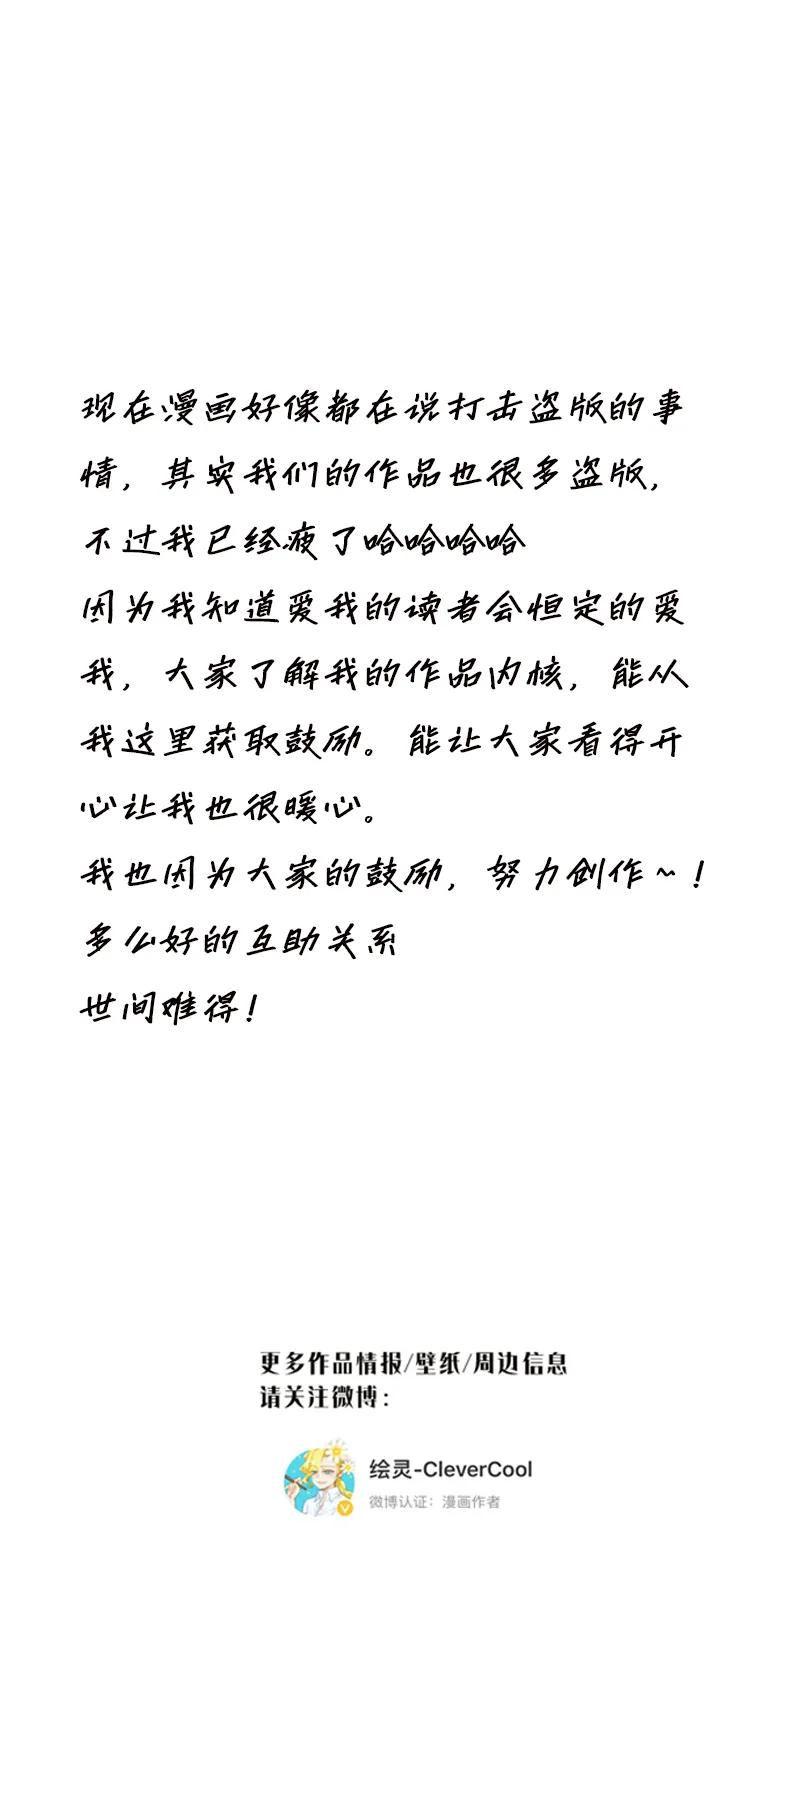 现在漫画好像都在说打击盗版的事
情，其实我们的作品也很多盗版，
不过我已经疲了哈哈哈哈
因为我知道爱我的读者会恒定的爱
我，大家了解我的作品内核，能从
我这里获取鼓励。能让大家看得开
心让我也很暖心。
我也因为大家的鼓励，努力创作~！
多么好的互助关系
世间难得！
更多作品情报/壁纸/周边信息
请关注微博：
绘灵-CleverCool
微博认证：漫画作者